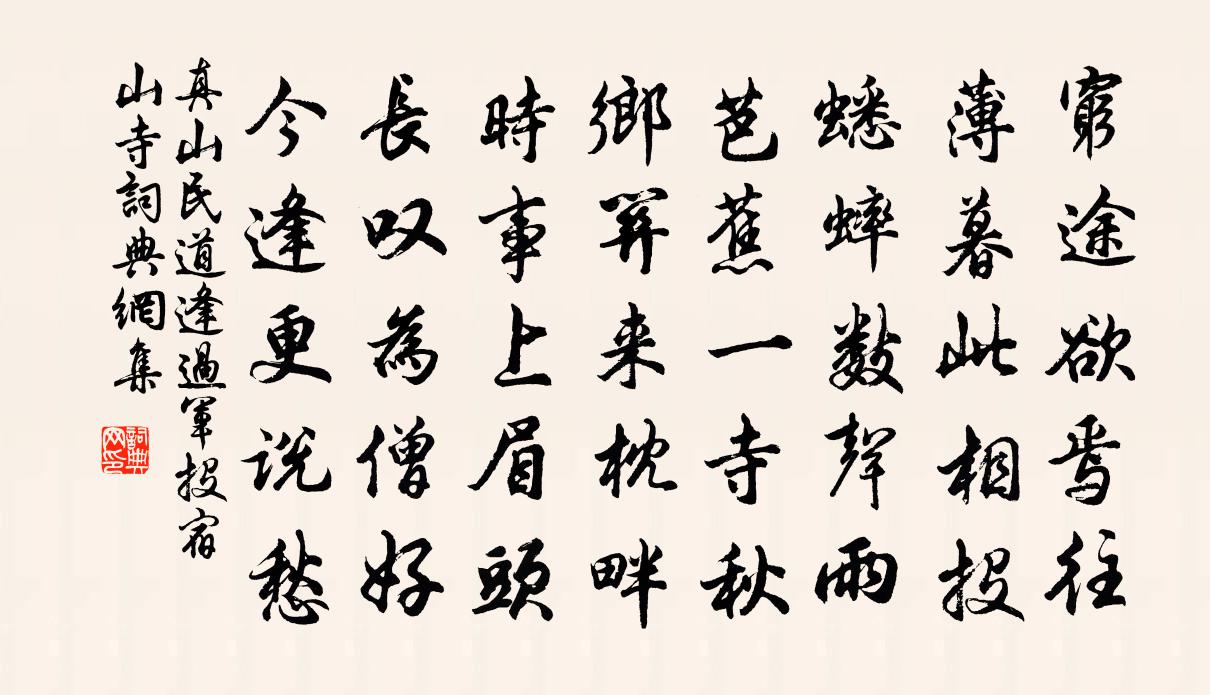 窮途欲焉往
薄暮此相投
蟋蟀數聲雨
芭蕉一寺秋
鄉関来枕畔
時事上眉頭
長叹為僧好
今逢更説愁
真山民道逢過軍投宿
山寺詞典網集
詞典
网印